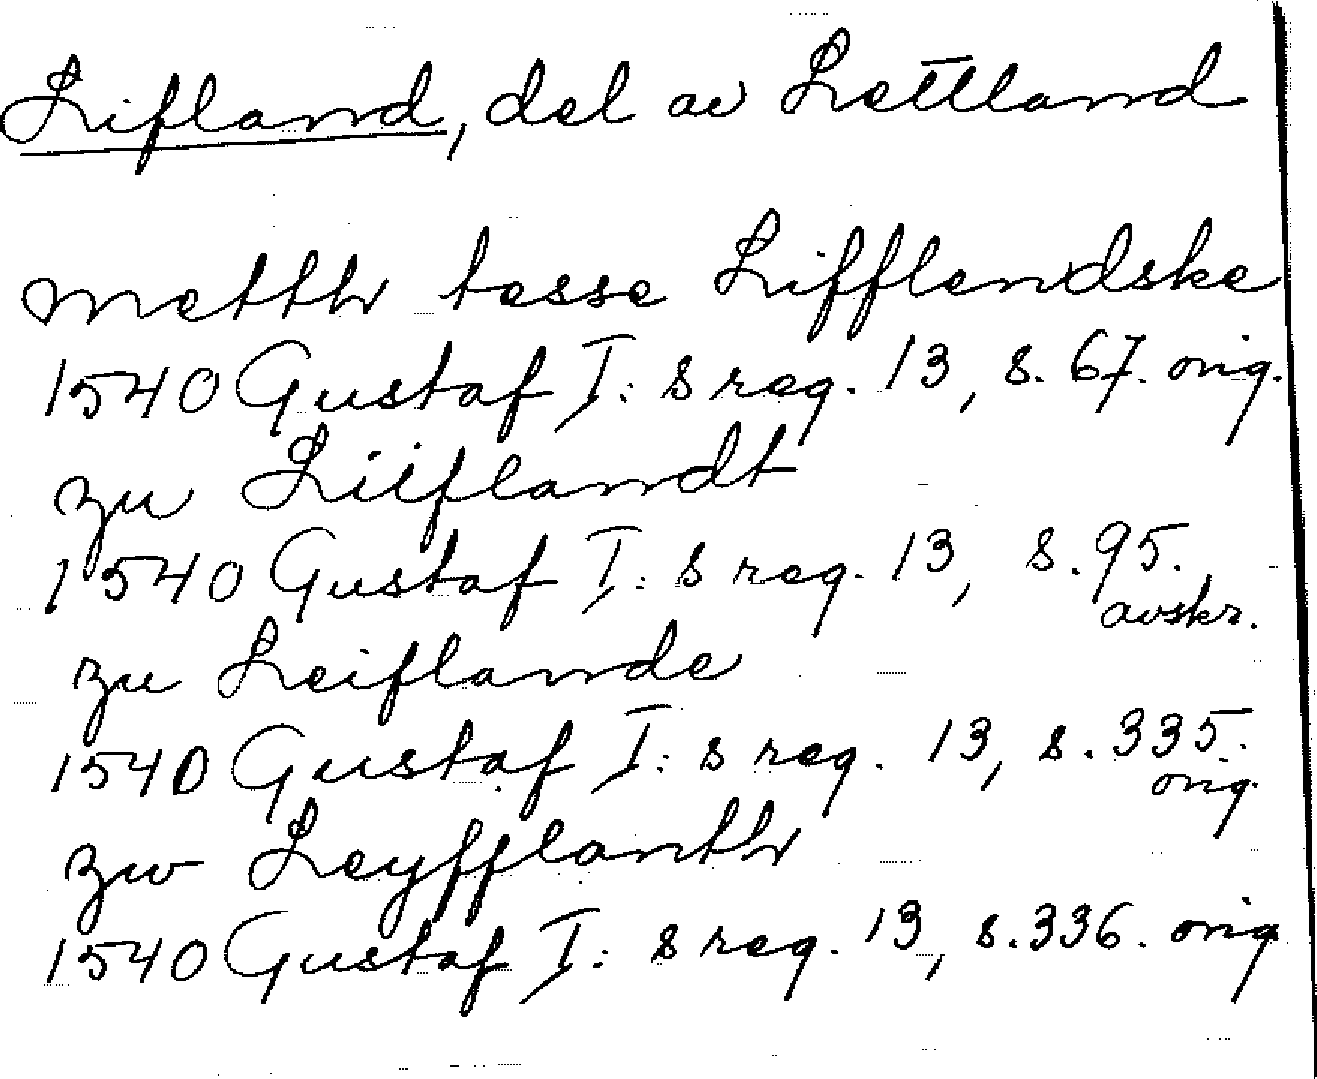 Lifland, del av Lettland
metth tesse Lifflendske
1540 Gustaf I:s reg. 13, s. 67. orig.
zu Liiflandt
1540 Gustaf I:s reg. 13, s. 95.
avskr.
zu Leiflande
1540 Gustaf I:s reg. 13, s. 335.
orig.
zw Leyfflanth
1540 Gustaf I:s reg. 13, s. 336. orig